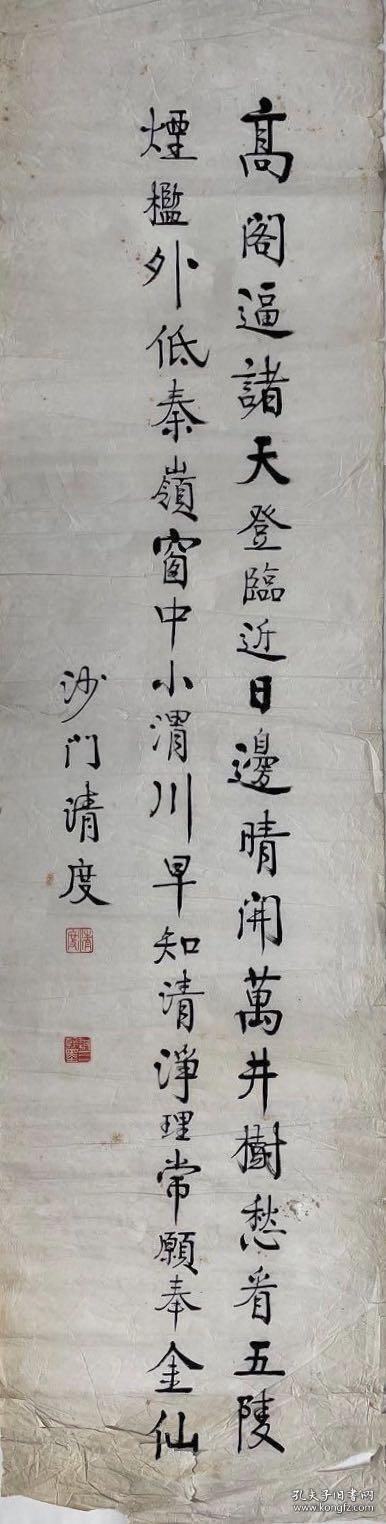 高閣逼諸天登臨近日邊晴開萬井樹愁看五陵
煙檻外低秦嶺窗中小渭川早知清淨理常願奉金仙
沙门清度
孔夫子旧书网